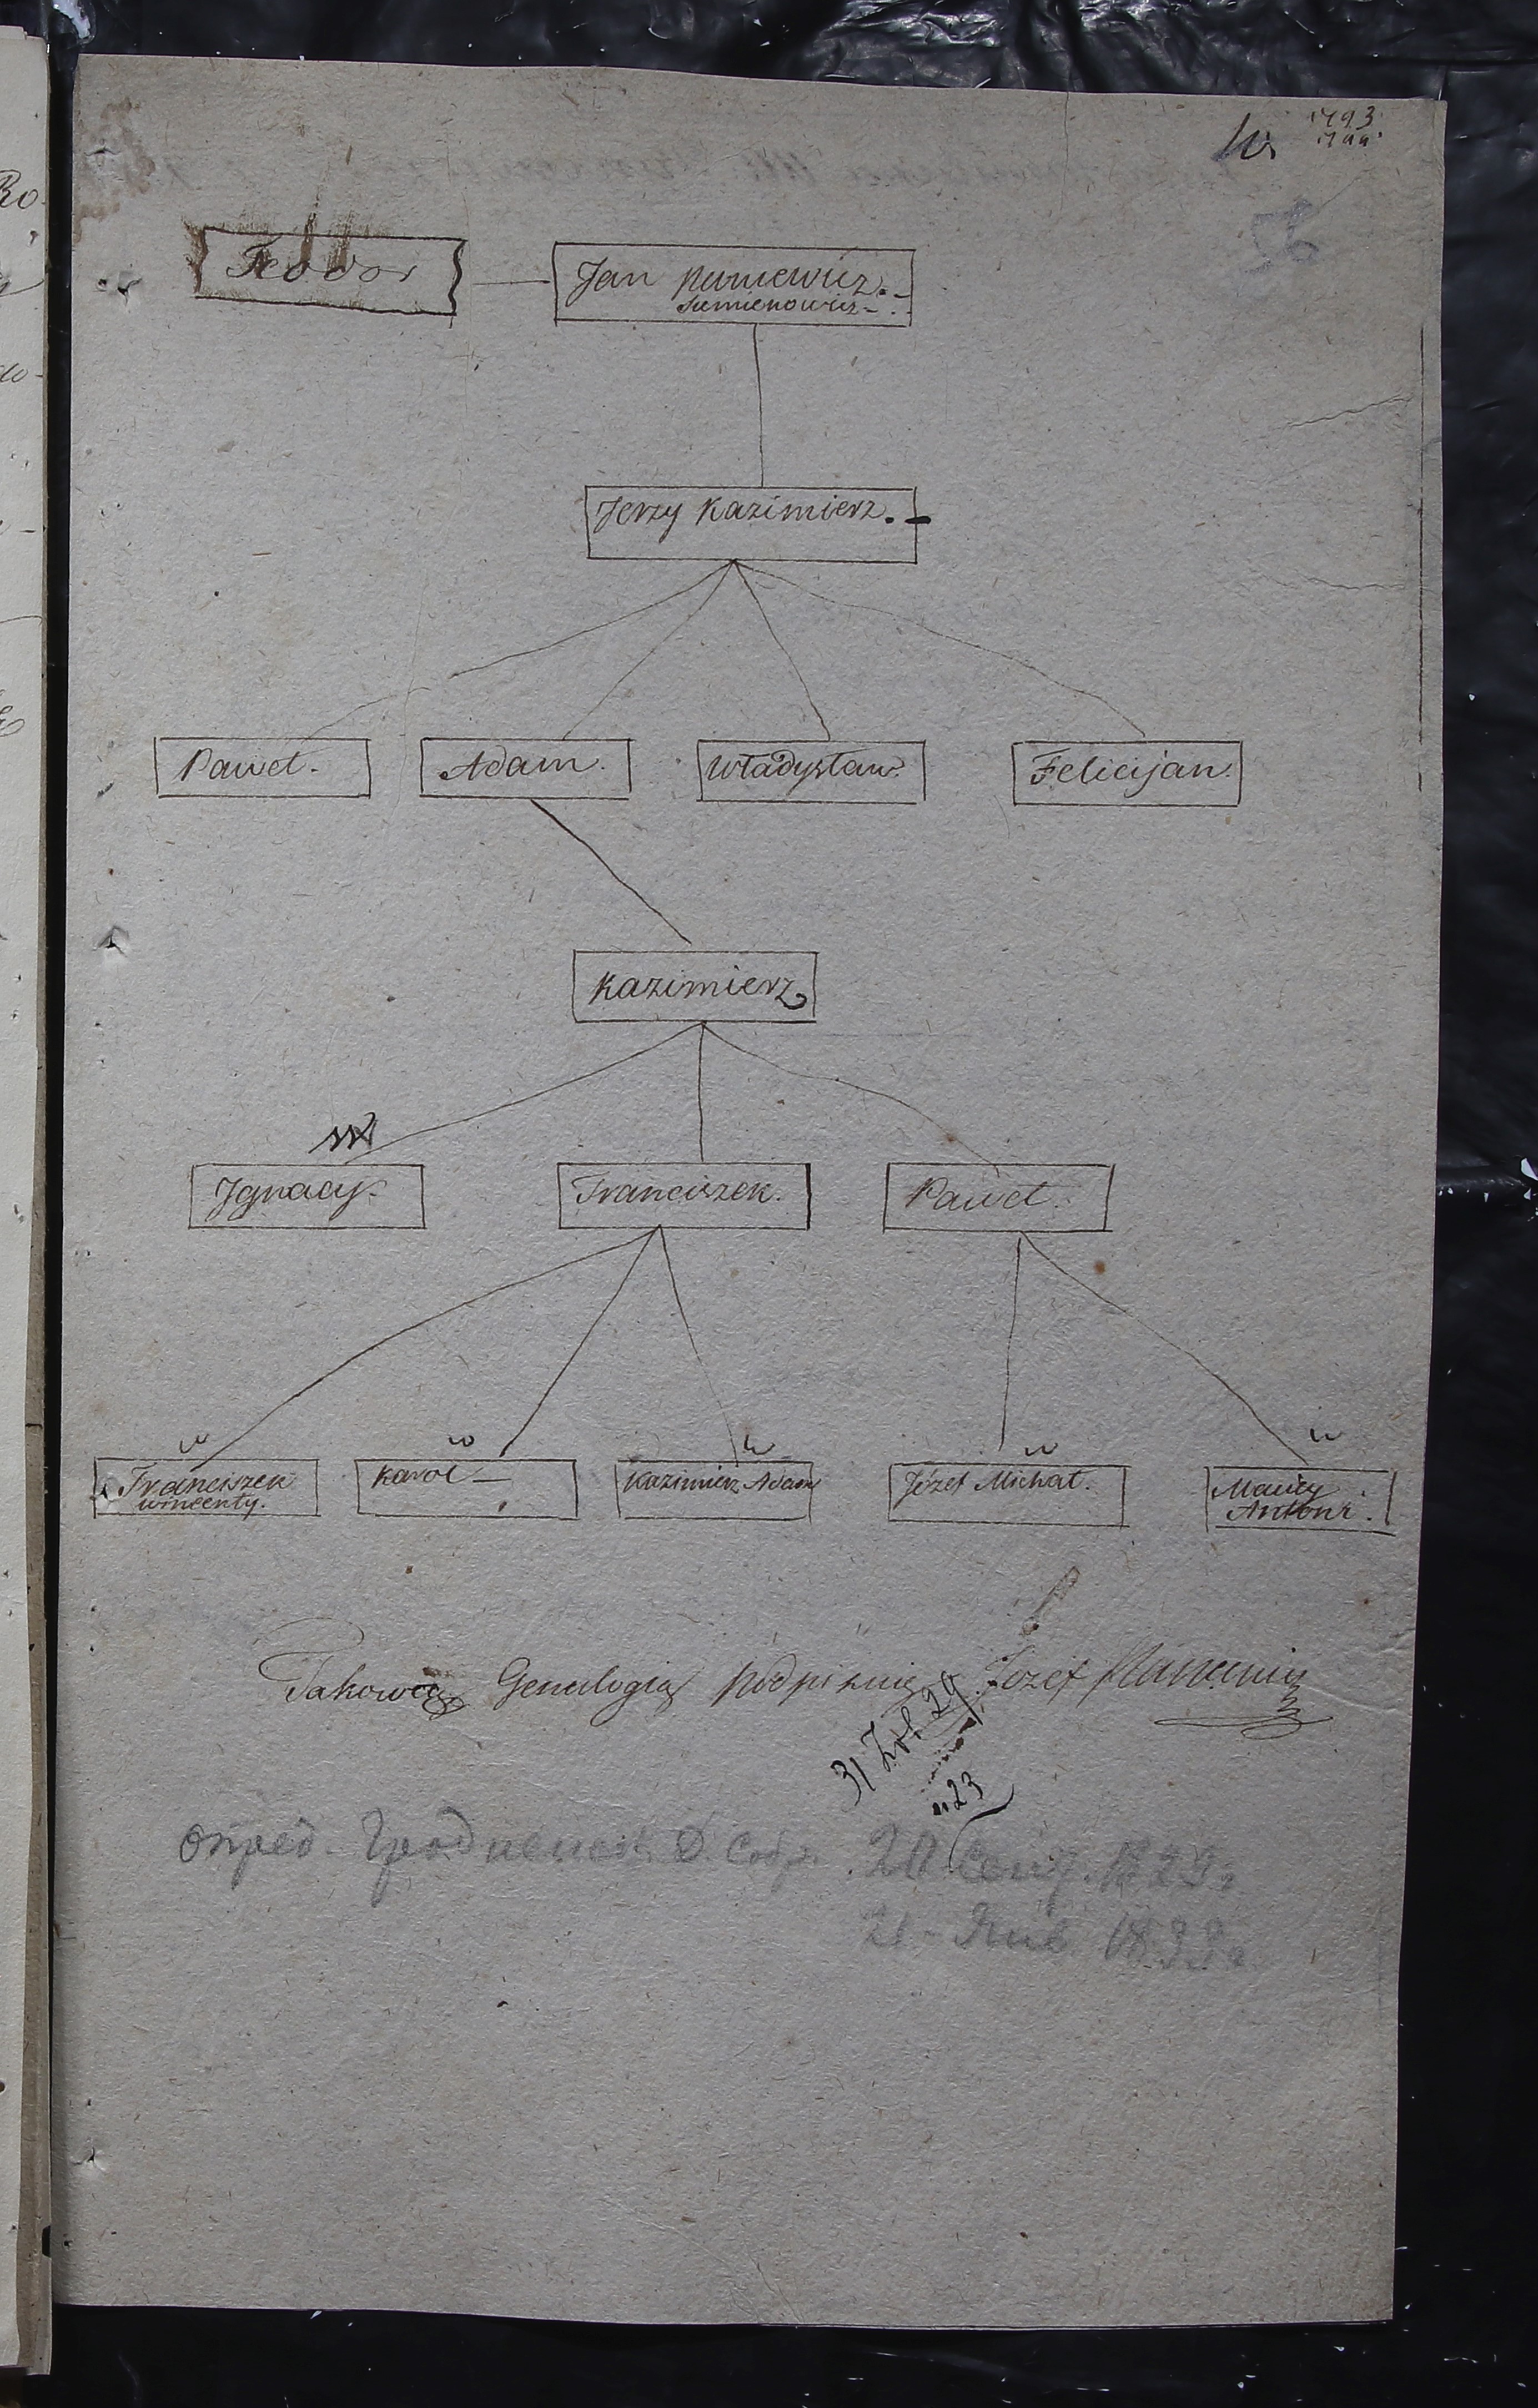 1793
Feodor
Jan Kuniewicz.
Siemienowicz
Jerzy Kazimierz.
Paweł.
Adam.
Władysław.
Felicijan.
Kazimierz
Jgnacy.
Franciszek.
Paweł.
Franciszek
Wincenty.
Karol
Kazimierz Adam
Józef Michał.
Maciey
Antoni.
Takową Genelogią podpisuię Jozef
31 29
23
Опред. Гродненск. Д. Собр. 20 1829 г
21 1833 г